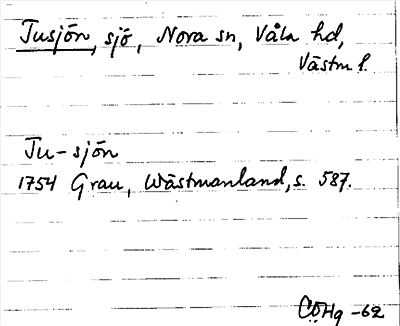 Tusjön, sjö, Nora sn, Våla hd,
Västm l.
Tu-sjön
1754 Grau, Wästmanland, s. 587.
CÖHg -62